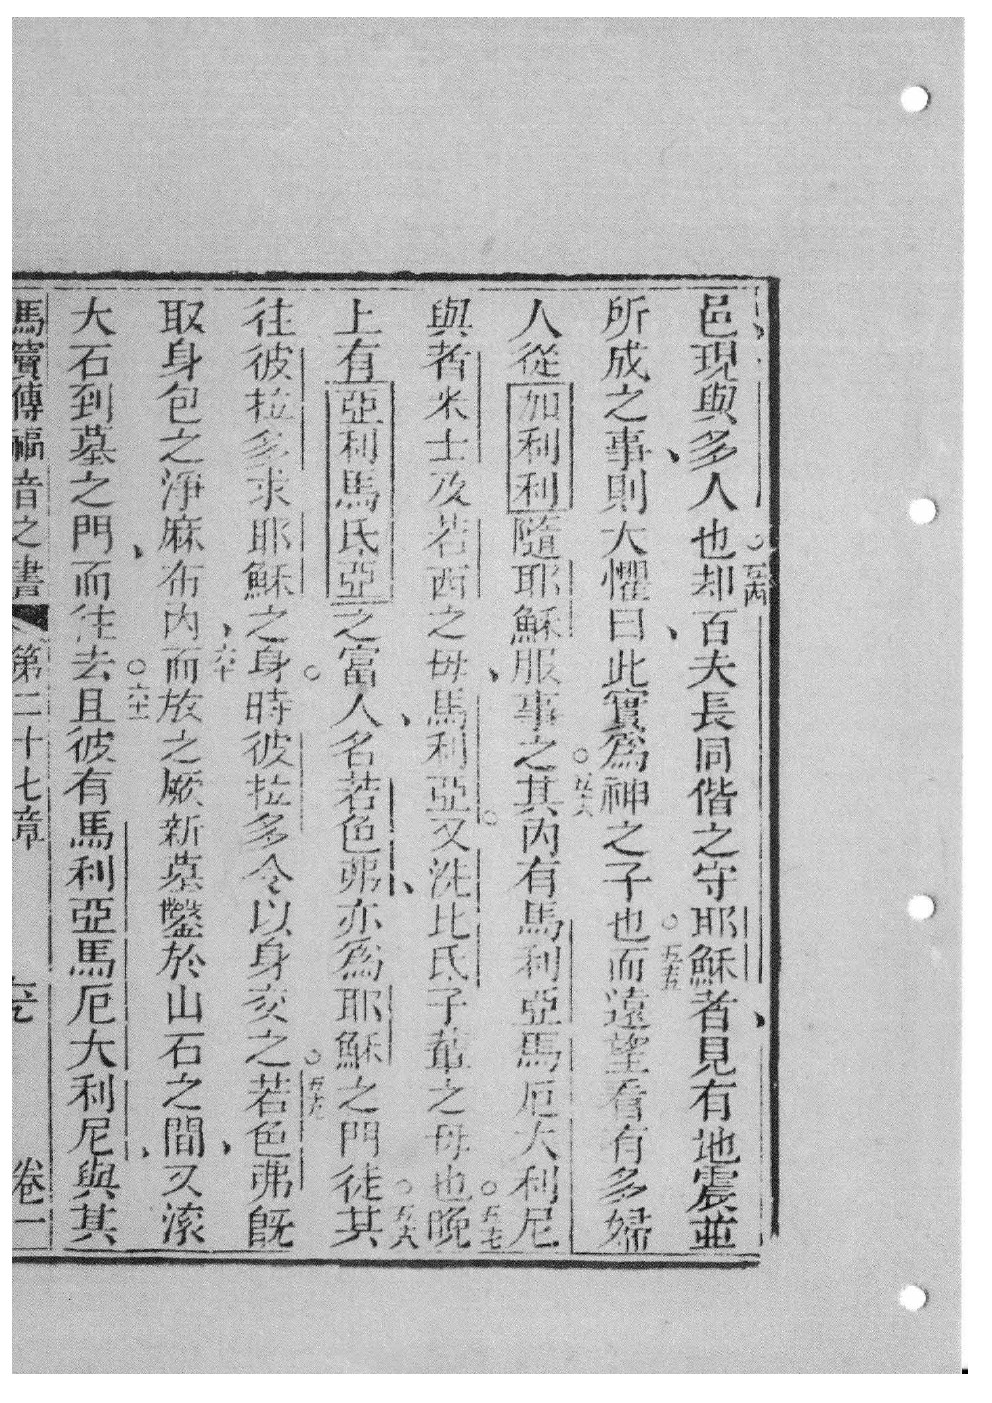 邑現與多人也○五四却百夫長同偕之守耶穌者見有地震並
所成之事則大懼曰此實為神之子也○五五而遠望看有多婦
人從加利利隨耶穌服事之○五六其內有馬利亞馬厄大利尼
與者米士及若西之母馬利亞○又洗比氐子輩之母也○五七晚
上有亞利馬氐亞之富人名若色弗亦為耶穌之門徒○五八其
往彼拉多求耶穌之身○時彼拉多令以身交之○五九若色弗既
取身包之淨麻布內六十而放之厥新墓鑿於山石之間又滚
大石到墓之門而往去○六十一且彼有馬利亞馬厄大利尼與其
馬竇傳福音之書 第二十七章 卷一